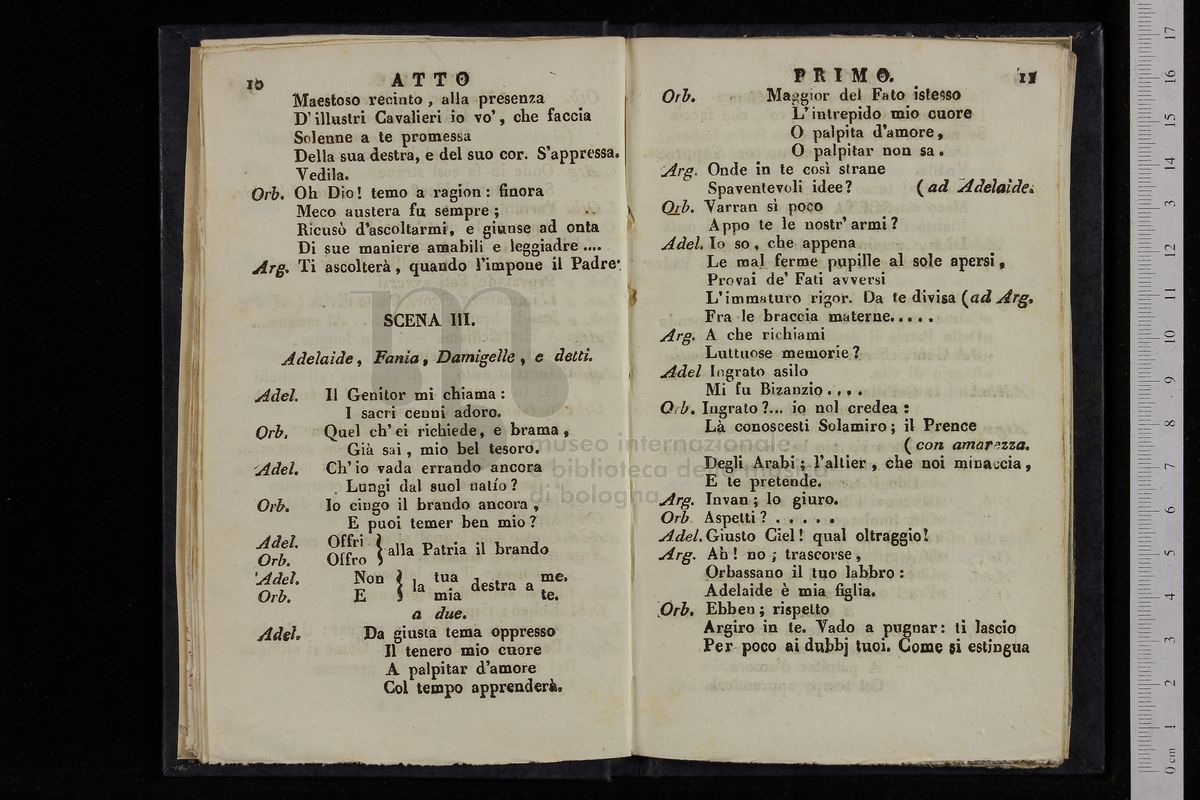 10 ATTO
Maestoso recinto, alla presenza
D'illustri Cavalieri io vo', che faccia
Solenne a te promessa
Della sua destra, e del suo cor. S'appressa.
Vedila.
Orb. Oh Dio! temo a ragion: finora
Meco austera fu sempre;
Ricusò d'ascoltarmi, e giunse ad onta
Di sue maniere amabili e leggiadre....
Arg. Ti ascolterà, quando l'impone il Padre.
SCENA III.
Adelaide, Fania, Damigelle, e detti.
Adel. Il Genitor mi chiama:
I sacri cenni adoro.
Orb. Quel ch'ei richiede, e brama,
Già sai, mio bel tesoro.
Adel. Ch'io vada errando ancora
Lungi dal suol natío?
Orb. Io cingo il brando ancora,
E puoi temer ben mio?
Adel. Offri } alla Patria il brando
Orb. Offro
Adel. Non } la tua destra a me.
Orb. E mia te.
a due.
Adel. Da giusta tema oppresso
Il tenero mio cuore
A palpitar d'amore
Col tempo apprenderà.
PRIMO. 11
Orb. Maggior del Fato istesso
L'intrepido mio cuore
O palpita d'amore,
O palpitar non sa.
Arg. Onde in te così strane
Spaventevoli idee? (ad Adelaide.
Orb. Varran sì poco
Appo te le nostr'armi?
Adel. Io so, che appena
Le mal ferme pupille al sole apersi,
Provai de' Fati avversi
L'immaturo rigor. Da te divisa (ad Arg.
Fra le braccia materne.....
Arg. A che richiami
Luttuose memorie?
Adel Ingrato asilo
Mi fu Bizanzio....
Orb. Ingrato?... io nol credea:
Là conoscesti Solamiro; il Prence
(con amarezza.
Degli Arabi; l'altier, che noi minaccia,
E te pretende.
Arg. Invan; lo giuro.
Orb. Aspetti?.....
Adel. Giusto Ciel! qual oltraggio!
Arg. Ah! no; trascorse,
Orbassano il tuo labbro:
Adelaide è mia figlia.
Orb. Ebben; rispetto
Argiro in te. Vado a pugnar: ti lascio
Per poco ai dubbj tuoi. Come si estingua
museo internazionale
biblioteca della musica
di bologna
0 cm 1 2 3 4 5 6 7 8 9 10 11 12 13 14 15 16 17